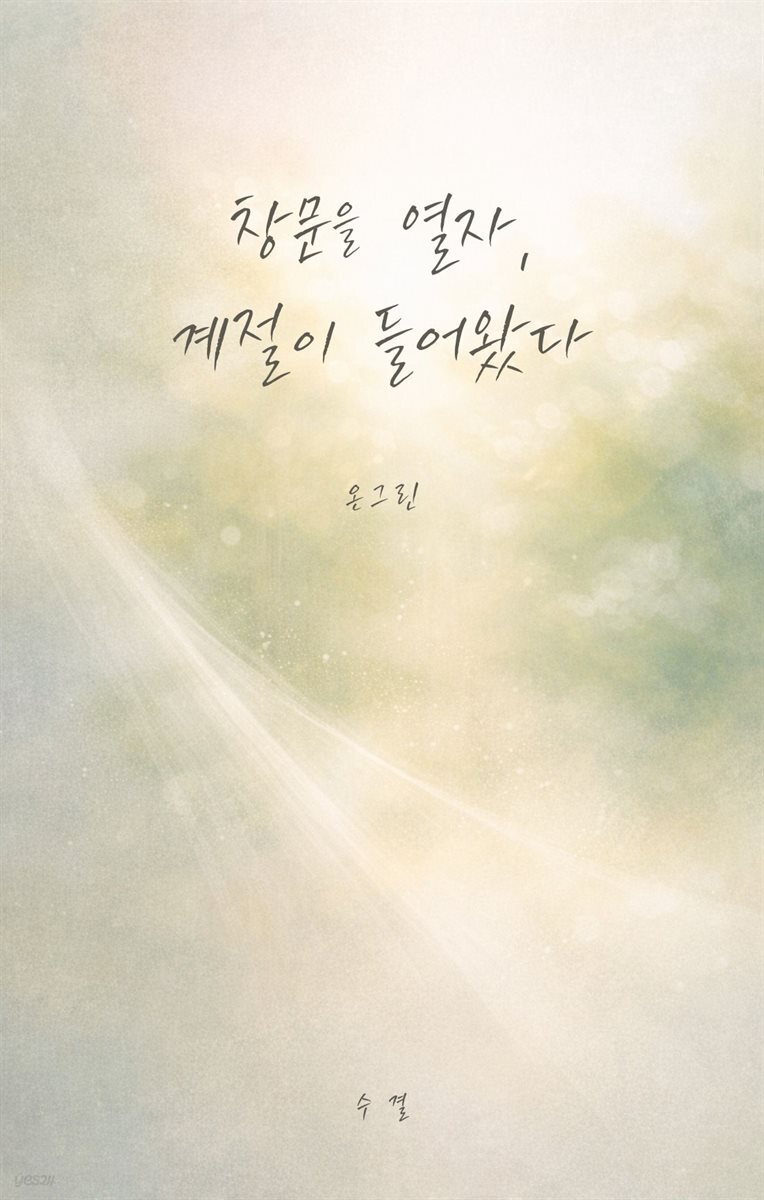 창문을 열자,
계절이 들어왔다
온그린
수결
yes24